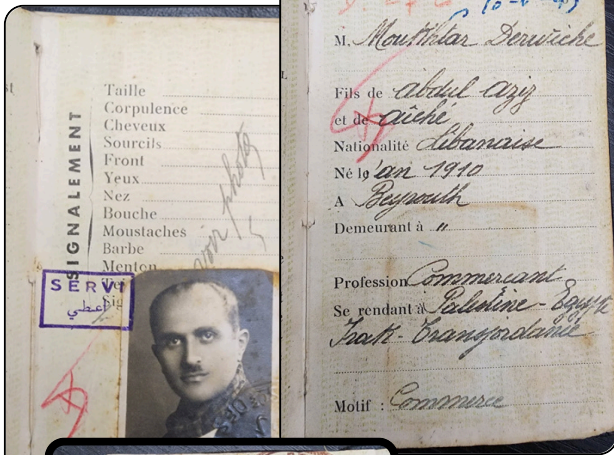 SIGNALEMENT
Taille
Corpulence
Cheveux
Sourcils
Front
Yeux
Nez
Bouche
Moustaches
Barbe
Menton
voir photo
SERVI
M. Moukhtar Derviche
Fils de abdul aziz
et de aïché
Nationalité Libanaise
Né l'an 1910
A Beyrouth
Demeurant à "
Profession Commercant
Se rendant à Palestine - Egypte
Irak - Transjordanie
Motif : Commerce